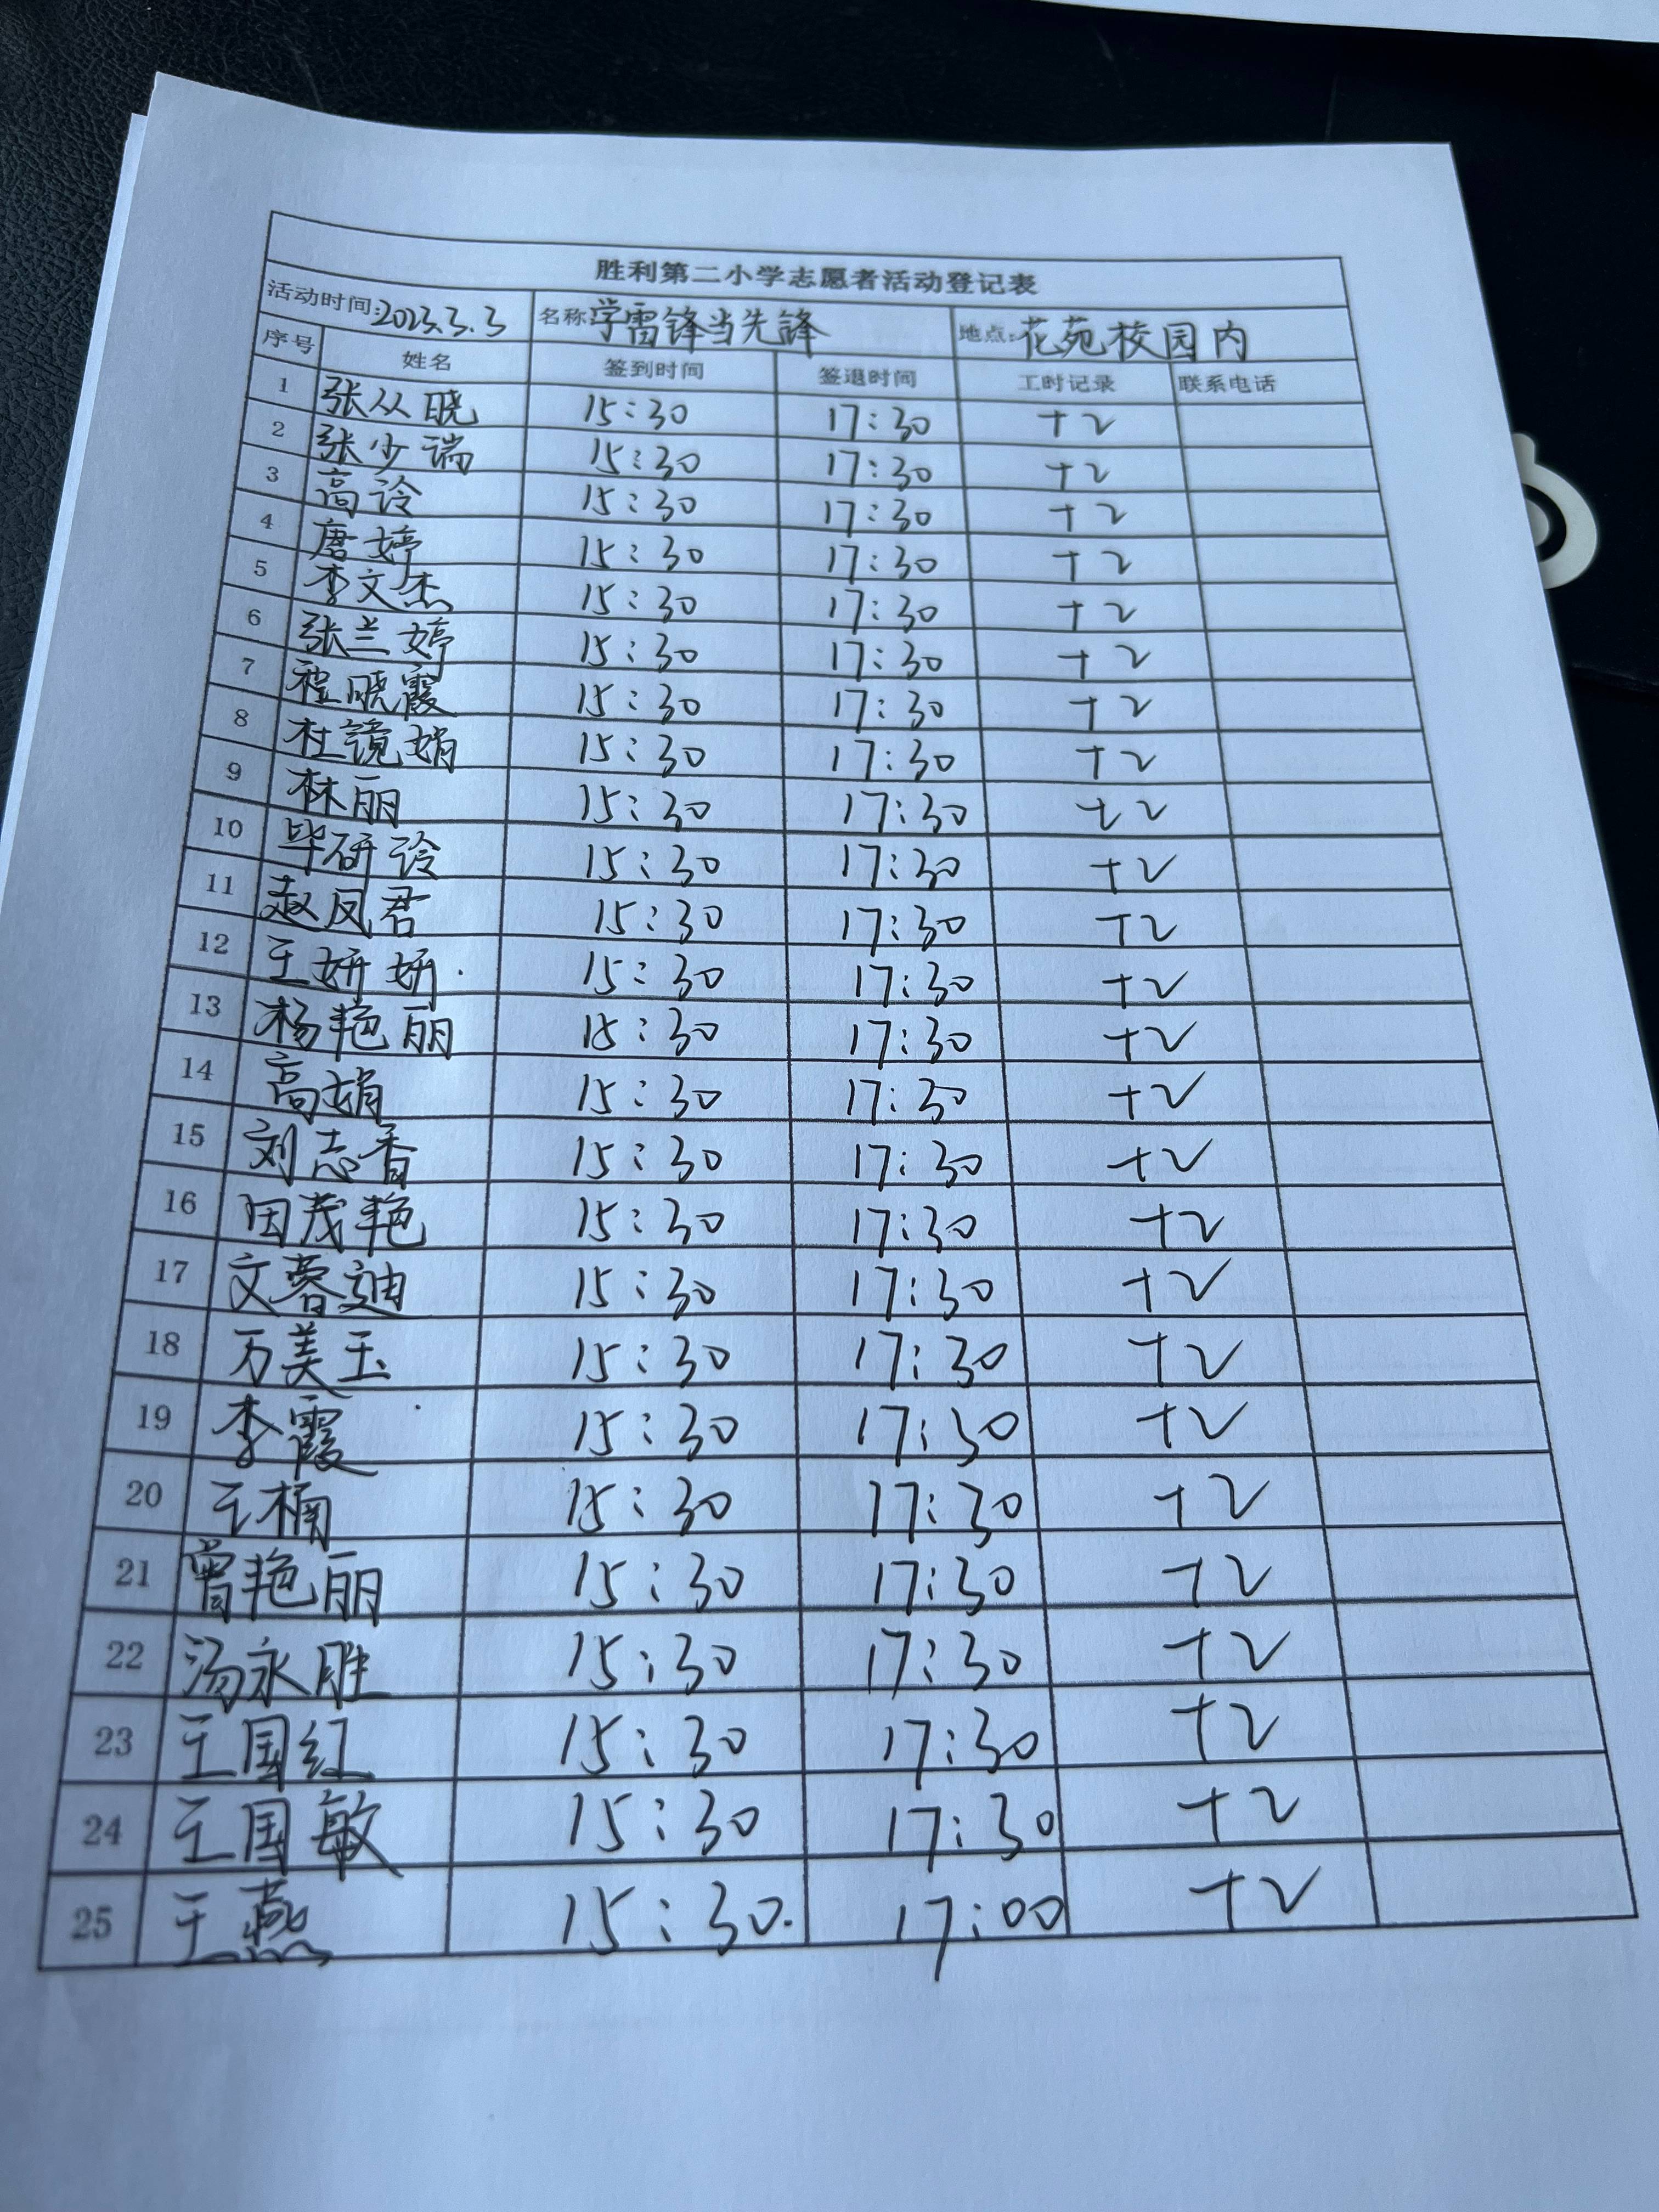 胜利第二小学志愿者活动登记表
活动时间:2023.3.3 名称:学雷锋当先锋 地点:花苑校园内
序号 姓名 签到时间 签退时间 工时记录 联系电话
1 张从晓 15:30 17:30 +2
2 张少瑞 15:30 17:30 +2
3 高诠 15:30 17:30 +2
4 唐婷 15:30 17:30 +2
5 李文杰 15:30 17:30 +2
6 张兰婷 15:30 17:30 +2
7 程晓霞 15:30 17:30 +2
8 杜镜娟 15:30 17:30 +2
9 林丽 15:30 17:30 +2
10 毕研诠 15:30 17:30 +2
11 赵凤君 15:30 17:30 +2
12 王妍妍 15:30 17:30 +2
13 杨艳丽 15:30 17:30 +2
14 高娟 15:30 17:30 +2
15 刘志香 15:30 17:30 +2
16 田茂艳 15:30 17:30 +2
17 文蓉迪 15:30 17:30 +2
18 万美玉 15:30 17:30 +2
19 李霞 15:30 17:30 +2
20 王楠 15:30 17:30 +2
21 曾艳丽 15:30 17:30 +2
22 汤永胜 15:30 17:30 +2
23 王国红 15:30 17:30 +2
24 王国敏 15:30 17:30 +2
25 王燕 15:30. 17:00 +2